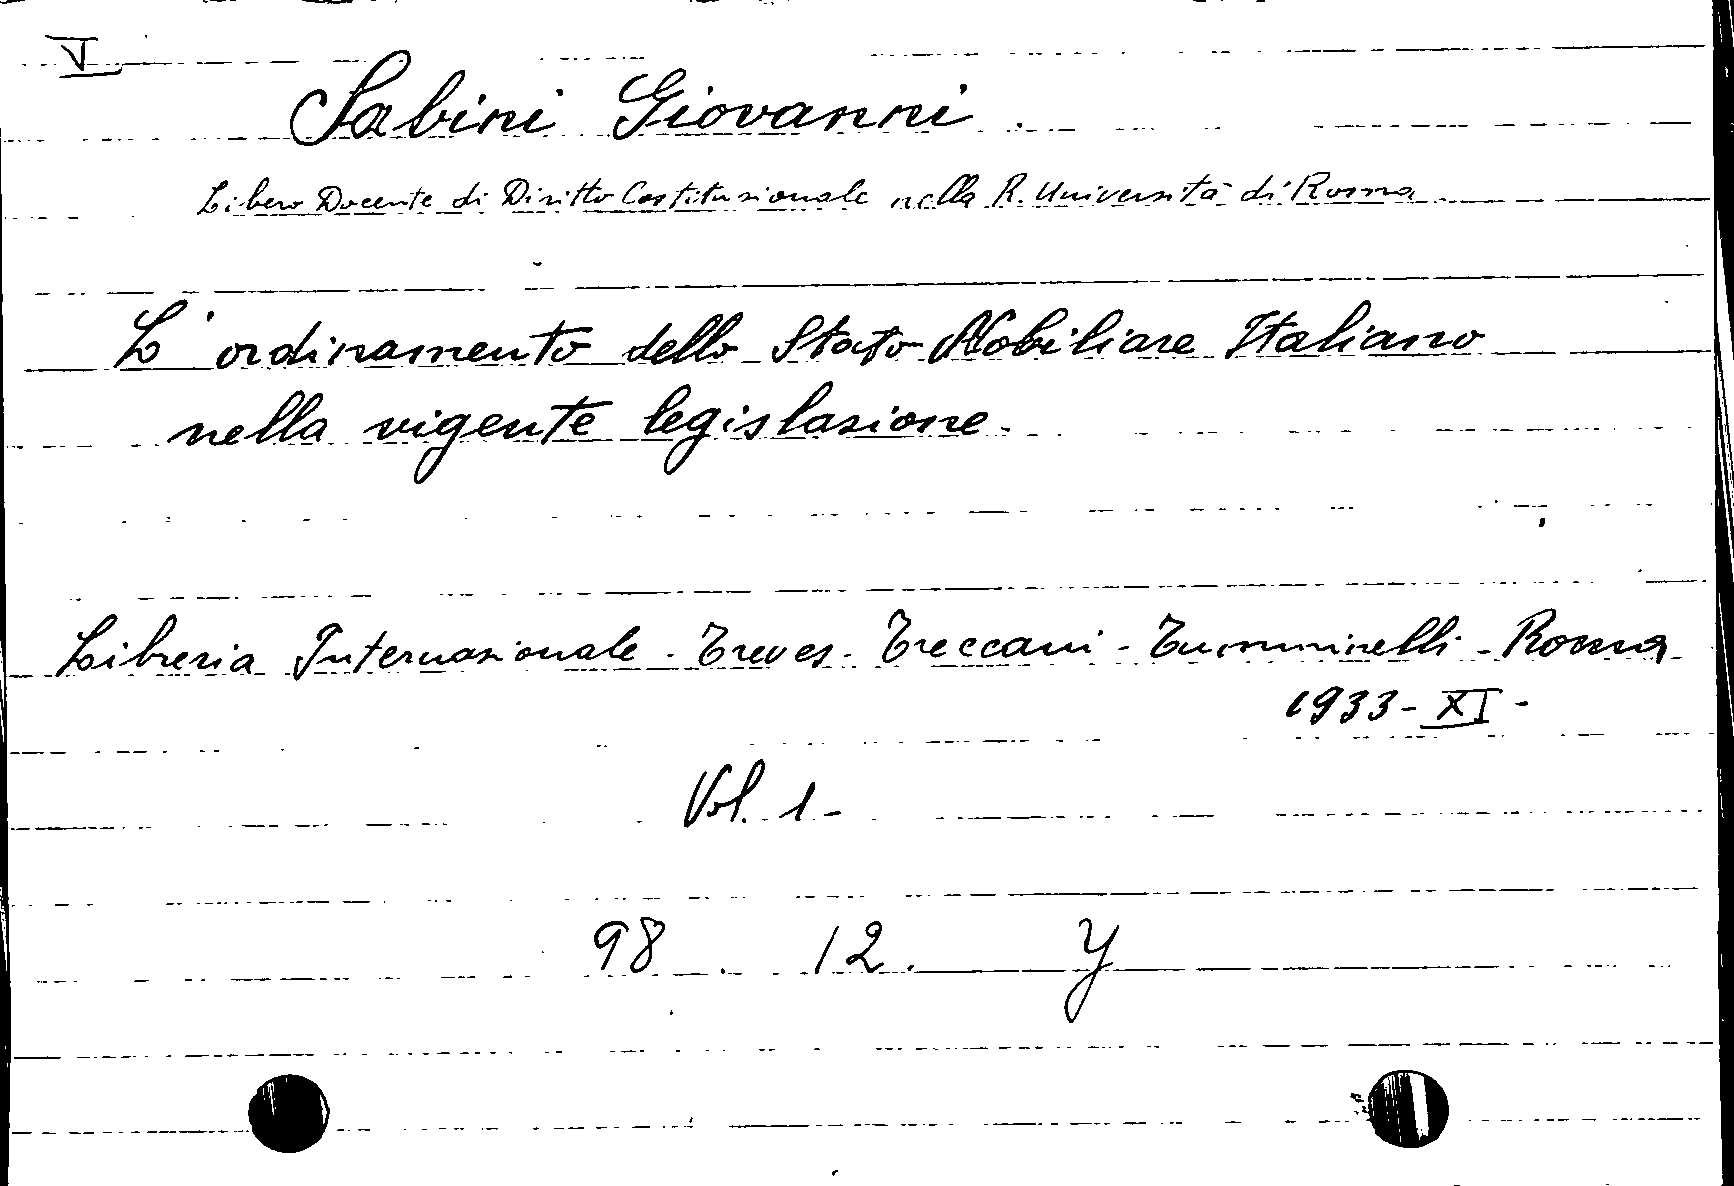 V
Sabini Giovanni
Libero Docente di Diritto Costituzionale nella R. Università di Roma
L'ordinamento dello Stato Nobiliare Italiano
nella vigente legislazione.
Libreria Internazionale - Treves - Treccani - Tumminelli - Roma
1933 - XI -
Vol. 1 -
98 . 12. Y